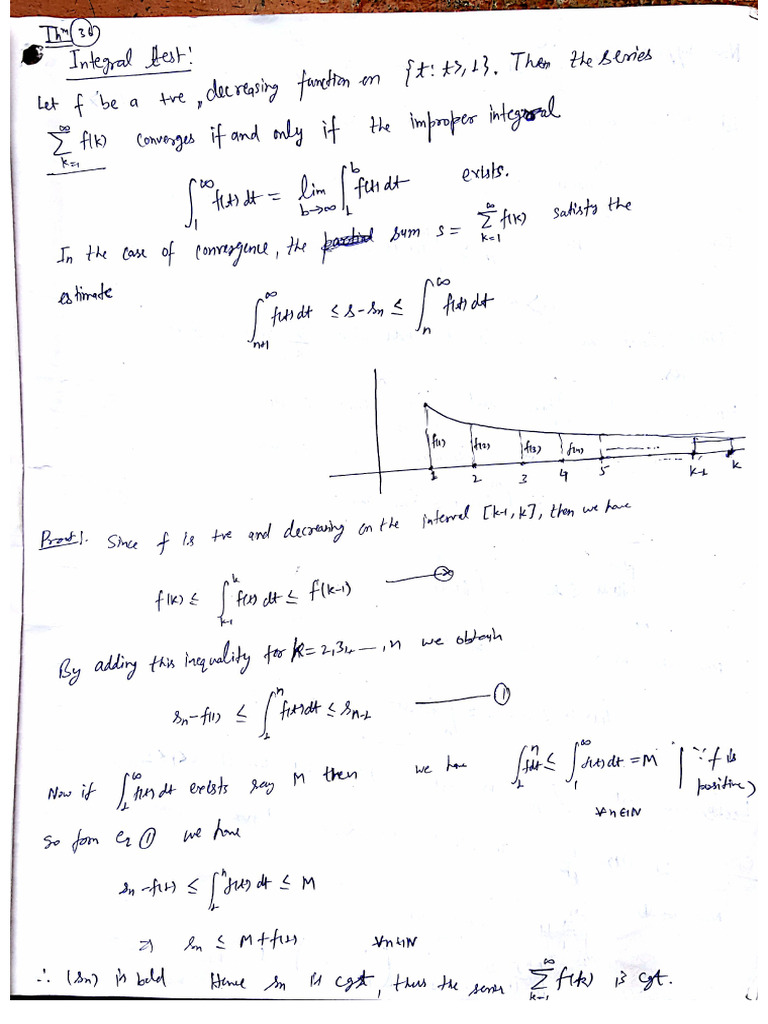 Thm 36
Integral test:
Let f be a +ve, decreasing function on {t: t≥1}. Then the series
∑_{k=1}^{∞} f(k) converges if and only if the improper integral
∫_1^∞ f(t) dt = lim_{b→∞} ∫_1^b f(t) dt exists.
In the case of convergence, the sum s = ∑_{k=1}^{∞} f(k) satisfy the
estimate
∫_{n+1}^∞ f(t) dt ≤ s - sn ≤ ∫_n^∞ f(t) dt
f(1) f(2) f(3) f(4) ------
1 2 3 4 5 k-1 k
Proof:. Since f is +ve and decreasing on the interval [k-1, k], then we have
f(k) ≤ ∫_{k-1}^k f(t) dt ≤ f(k-1)
By adding this inequality for k=2,3,---,n we obtain
sn - f(1) ≤ ∫_1^n f(t) dt ≤ s_{n-1} —— ①
Now if ∫_1^∞ f(t) dt exists say M then we have ∫_1^n f dt ≤ ∫_1^∞ f(t) dt = M | ∵ f is
positive)
∀n∈IN
So form ① we have
sn - f(1) ≤ ∫_1^n f(t) dt ≤ M
⇒ sn ≤ M + f(1) ∀n∈IN
∴ (sn) is bdd Hence sn is cgt, thus the series ∑_{k=1}^{∞} f(k) is cgt.